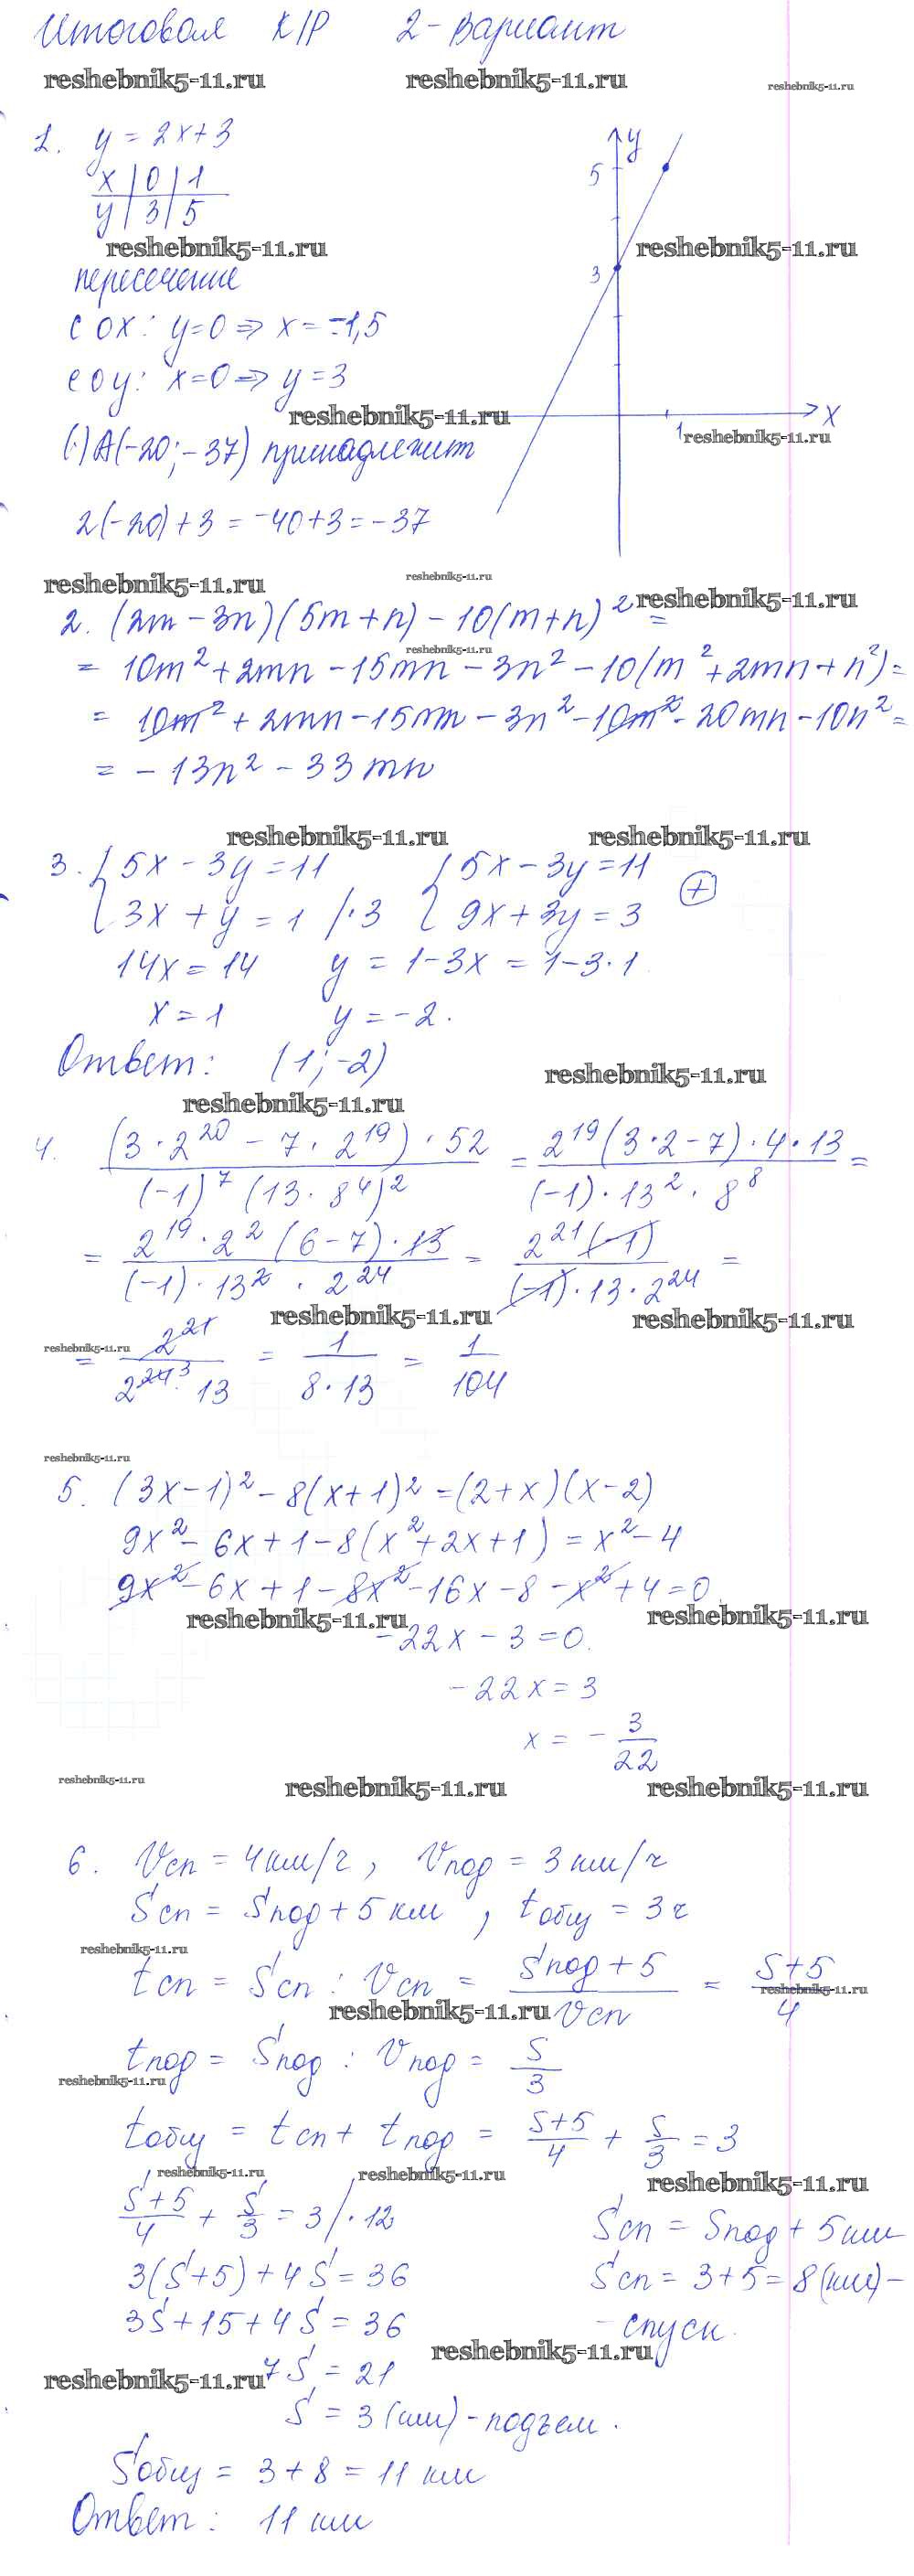 Итоговая К/Р 2-вариант
reshebnik5-11.ru reshebnik5-11.ru reshebnik5-11.ru
1. y = 2x+3
x | 0 | 1
y | 3 | 5
y
5
3
x
1
reshebnik5-11.ru reshebnik5-11.ru
пересечение
с ox: y=0 ⇒ x = -1,5
с oy: x=0 ⇒ y = 3
reshebnik5-11.ru
reshebnik5-11.ru
(·) A(-20; -37) принадлежит
2(-20)+3 = -40+3 = -37
reshebnik5-11.ru reshebnik5-11.ru reshebnik5-11.ru
2. (2m - 3n)(5m + n) - 10(m+n)² =
reshebnik5-11.ru
= 10m² + 2mn - 15mn - 3n² - 10(m² + 2mn + n²) =
= 10m² + 2mn - 15mn - 3n² - 10m² - 20mn - 10n² =
= - 13n² - 33mn
reshebnik5-11.ru reshebnik5-11.ru
3. { 5x - 3y = 11 { 5x - 3y = 11
{ 3x + y = 1 /·3 { 9x + 3y = 3 (+)
14x = 14 y = 1-3x = 1-3·1
x = 1 y = -2.
Ответ: (1; -2)
reshebnik5-11.ru
reshebnik5-11.ru
4. (3·2²⁰ - 7·2¹⁹)·52 / (-1)⁷(13·8⁴)² = 2¹⁹(3·2-7)·4·13 / (-1)·13²·8⁸ =
= 2¹⁹·2²(6-7)·13 / (-1)·13²·2²⁴ = 2²¹(-1) / (-1)·13·2²⁴ =
reshebnik5-11.ru reshebnik5-11.ru
reshebnik5-11.ru
= 2²¹ / 2²⁴ ³·13 = 1 / 8·13 = 1 / 104
reshebnik5-11.ru
5. (3x-1)² - 8(x+1)² = (2+x)(x-2)
9x² - 6x + 1 - 8(x² + 2x + 1) = x² - 4
9x² - 6x + 1 - 8x² - 16x - 8 - x² + 4 = 0.
reshebnik5-11.ru reshebnik5-11.ru
-22x - 3 = 0.
-22x = 3
x = - 3/22
reshebnik5-11.ru reshebnik5-11.ru reshebnik5-11.ru
6. Vсп = 4км/ч, Vпод = 3км/ч
Sсп = Sпод + 5 км, tобщ = 3ч
reshebnik5-11.ru
tсп = Sсп : Vсп = Sпод + 5 / Vсп = S+5 / 4
reshebnik5-11.ru
reshebnik5-11.ru
tпод = Sпод : Vпод = S/3
reshebnik5-11.ru
tобщ = tсп + tпод = S+5 / 4 + S/3 = 3
reshebnik5-11.ru reshebnik5-11.ru reshebnik5-11.ru
S+5 / 4 + S/3 = 3 /·12 Sсп = Sпод + 5км
3(S+5) + 4S = 36 Sсп = 3+5 = 8(км) -
3S + 15 + 4S = 36 - спуск.
reshebnik5-11.ru
reshebnik5-11.ru
7S = 21
S = 3 (км) - подъем.
Sобщ = 3 + 8 = 11 км
Ответ: 11 км